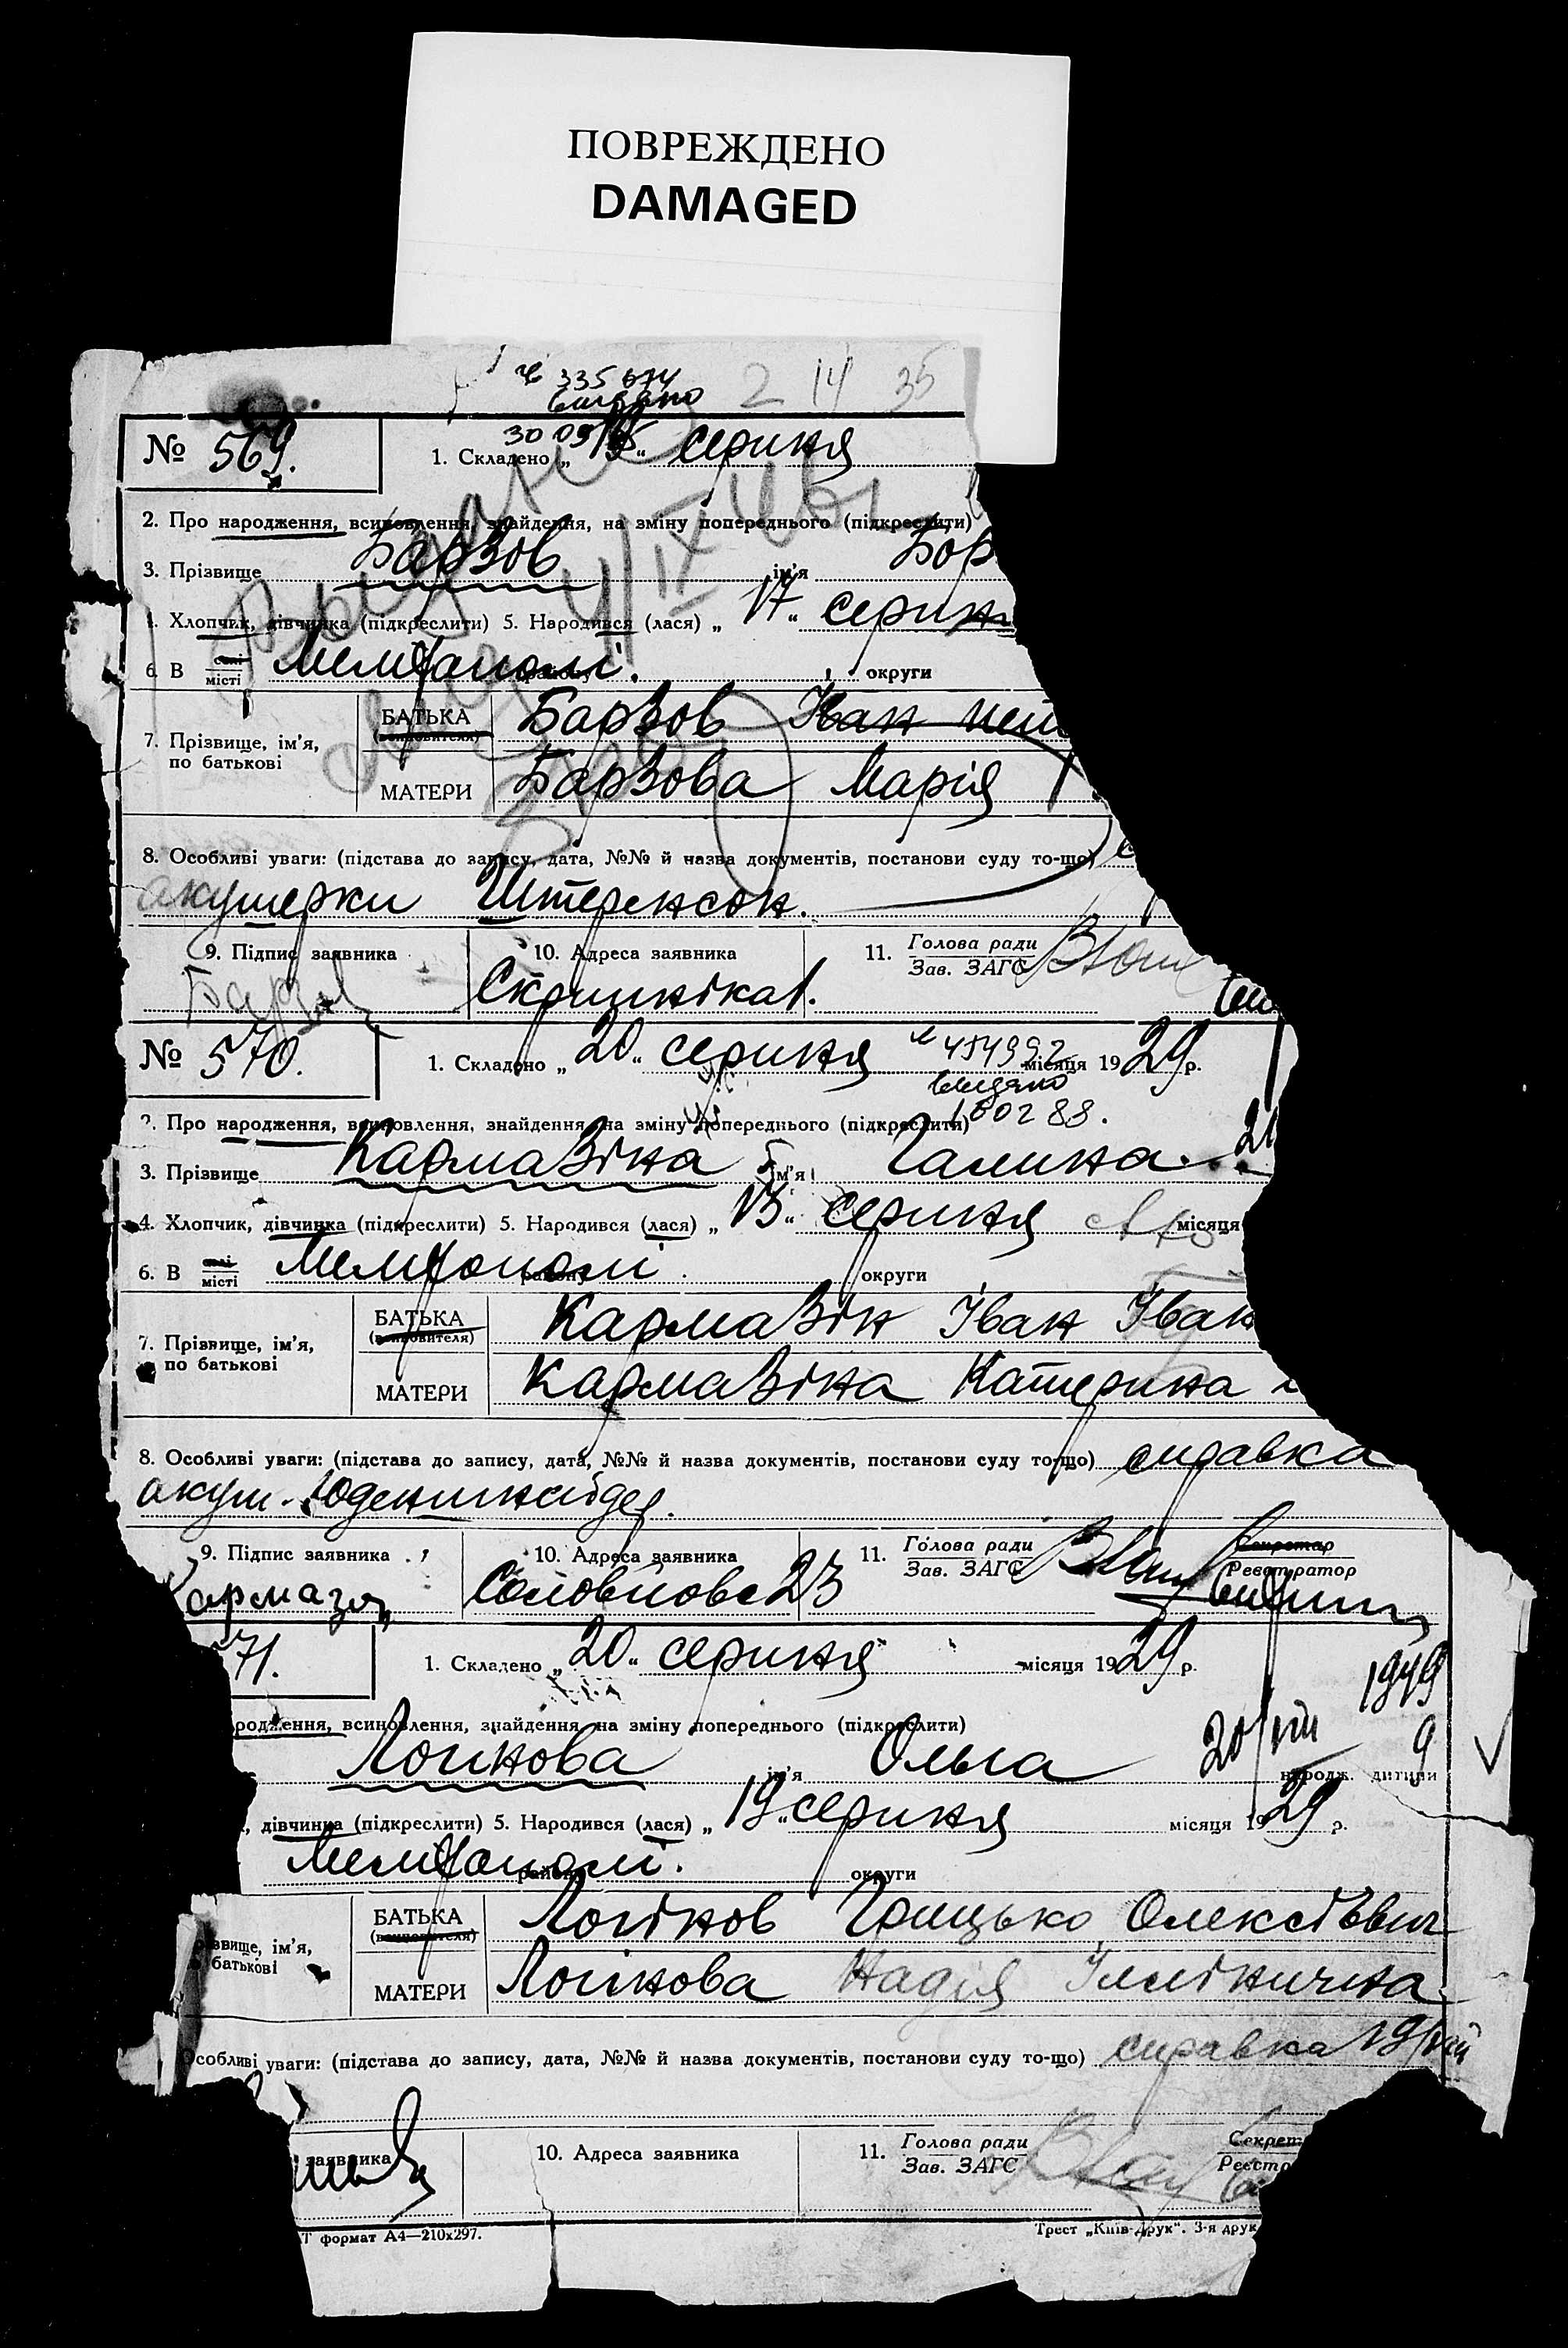 ПОВРЕЖДЕНО
DAMAGED
№ 335674
видано
2 14 35
30 09
№ 569. 1. Складено „ “ серпня
2. Про народження, всиновлення, знайдення, на зміну попереднього (підкреслити)
3. Прізвище Барзов ім'я Бор
4. Хлопчик, дівчинка (підкреслити) 5. Народився (лася) „ 17 “ серпн
6. В селі місті Мелітополі. району округи
7. Прізвище, ім'я, по батькові
БАТЬКА (всиновителя) Барзов Іван
МАТЕРИ Барзова Марія
8. Особливі уваги: (підстава до запису, дата, №№ й назва документів, постанови суду то-що)
акушерки Штеренсон.
9. Підпис заявника 10. Адреса заявника 11. Голова ради Зав. ЗАГС
Барзов Скрипніка 1.
№ 570. 1. Складено „ 20 “ серпня місяця 1929 р.
№ 454992
видано
2. Про народження, всиновлення, знайдення, на зміну попереднього (підкреслити)
3. Прізвище Кармазіна ім'я Галина.
4. Хлопчик, дівчинка (підкреслити) 5. Народився (лася) „ 13 “ серпня місяця
6. В селі місті Мелітополі району округи
7. Прізвище, ім'я, по батькові
БАТЬКА (всиновителя) Кармазін Іван Іван
МАТЕРИ Кармазіна Катерина
8. Особливі уваги: (підстава до запису, дата, №№ й назва документів, постанови суду то-що) справка
акуш.
9. Підпис заявника 10. Адреса заявника 11. Голова ради Зав. ЗАГС Секретар Реєстратор
армазін Соловйова 23
71. 1. Складено „ 20 “ серпня місяця 1929 р.
1949
родження, всиновлення, знайдення, на зміну попереднього (підкреслити)
Логінова ім'я Ольга 20/VIII 9
народж. дитини
, дівчинка (підкреслити) 5. Народився (лася) „ 19 “ серпня місяця 1929 р.
Мелітополі. району округи
звище, ім'я, батькові
БАТЬКА (всиновителя) Логінов Грицько Олексієвич
МАТЕРИ Логінова Надія
Особливі уваги: (підстава до запису, дата, №№ й назва документів, постанови суду то-що) справка 19/VIII
заявника 10. Адреса заявника 11. Голова ради Зав. ЗАГС Секрет Реєстр
Т формат А4—210х297. Трест „Київ-Друк“. 3-я друк